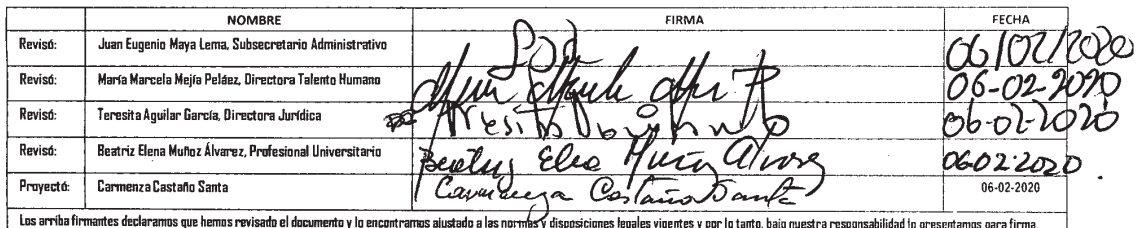 NOMBRE FIRMA FECHA
Revisó: Juan Eugenio Maya Lema, Subsecretario Administrativo 06/02/2020
Revisó: María Marcela Mejía Peláez, Directora Talento Humano 06-02-2020
Revisó: Teresita Aguilar García, Directora Jurídica 06-02-2020
Revisó: Beatriz Elena Muñoz Álvarez, Profesional Universitario Beatriz Elena Muñoz Álvarez 06-02-2020
Proyectó: Carmenza Castaño Santa Carmenza Castaño Santa 06-02-2020
Los arriba firmantes declaramos que hemos revisado el documento y lo encontramos ajustado a las normas y disposiciones legales vigentes y por lo tanto, bajo nuestra responsabilidad lo presentamos para firma.